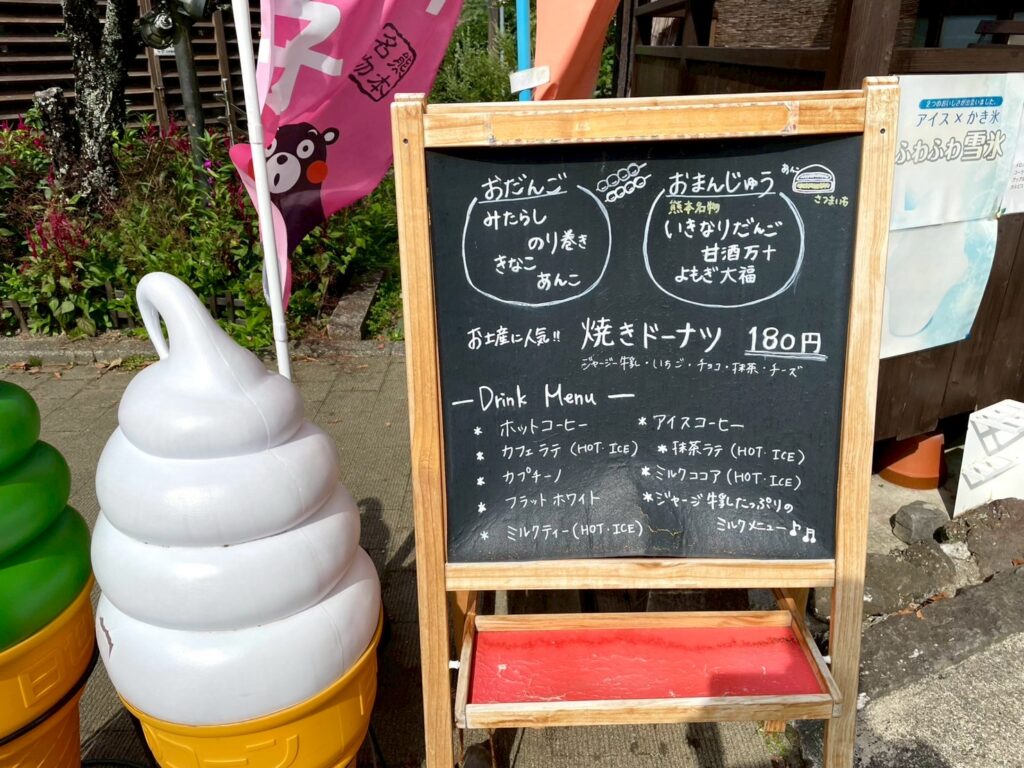 子
熊本
名物
おだんご
みたらし
のり巻き
きなこ
あんこ
おまんじゅう
熊本名物
いきなりだんご
甘酒万十
よもぎ大福
あんこ
さつまいも
お土産に人気!! 焼きドーナツ 180円
ジャージー牛乳・いちご・チョコ・抹茶・チーズ
— Drink Menu —
* ホットコーヒー
* カフェラテ (HOT・ICE)
* カプチーノ
* フラットホワイト
* ミルクティー (HOT・ICE)
* アイスコーヒー
* 抹茶ラテ (HOT・ICE)
* ミルクココア (HOT・ICE)
* ジャージ牛乳たっぷりの
ミルクメニュー♪♫
2つのおいしさが出会いました。
アイス×かき氷
ふわふわ雪氷